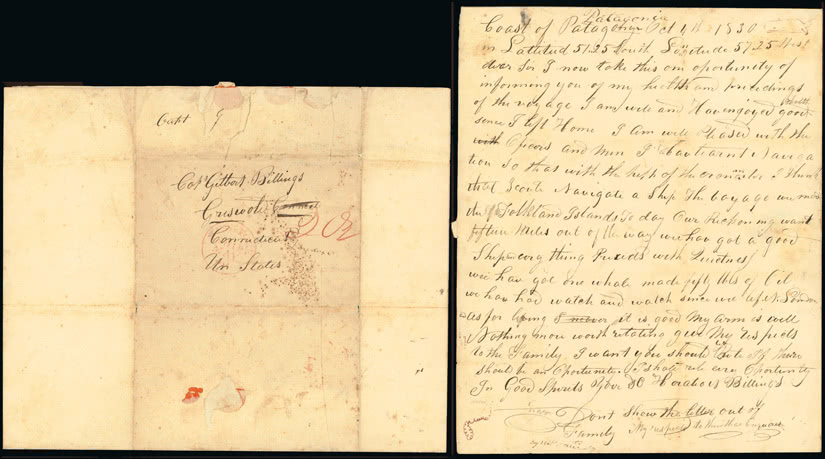 Capt G
Capt Gilbert Billings
Griswold
Connecticut
Un States
Patagonia
Coast of Patagonia Oct 4th 1830
in Lattitud 51.25 South Longitude 57.25 West
dear Sir I now take this an oportunity of
informing you of my helth and procedings
of the voyage I am well and Hav enjoyed good helth
since I left Home I am well pleased with the
Oficers and Men I have learnt Naviga
tion So that with the help of the I think
that I coud Navigate a Ship the voyage we made
the Folkland Islands To day Our Reckoning want
fifteen Miles out of the way we hav got a good
Ship every thing Proseds with
we hav got one whale made fifty bbls of Oil
we hav had watch and watch since we left N London
as for it is good My arm is well
Nothing more worth relating give My respects
to the Family I want you should write if there
should be an Oportunity I shall every Oportunity
In Good Spirits Your &c Horatio Billings
Dont Show the letter out of
Family My respects to